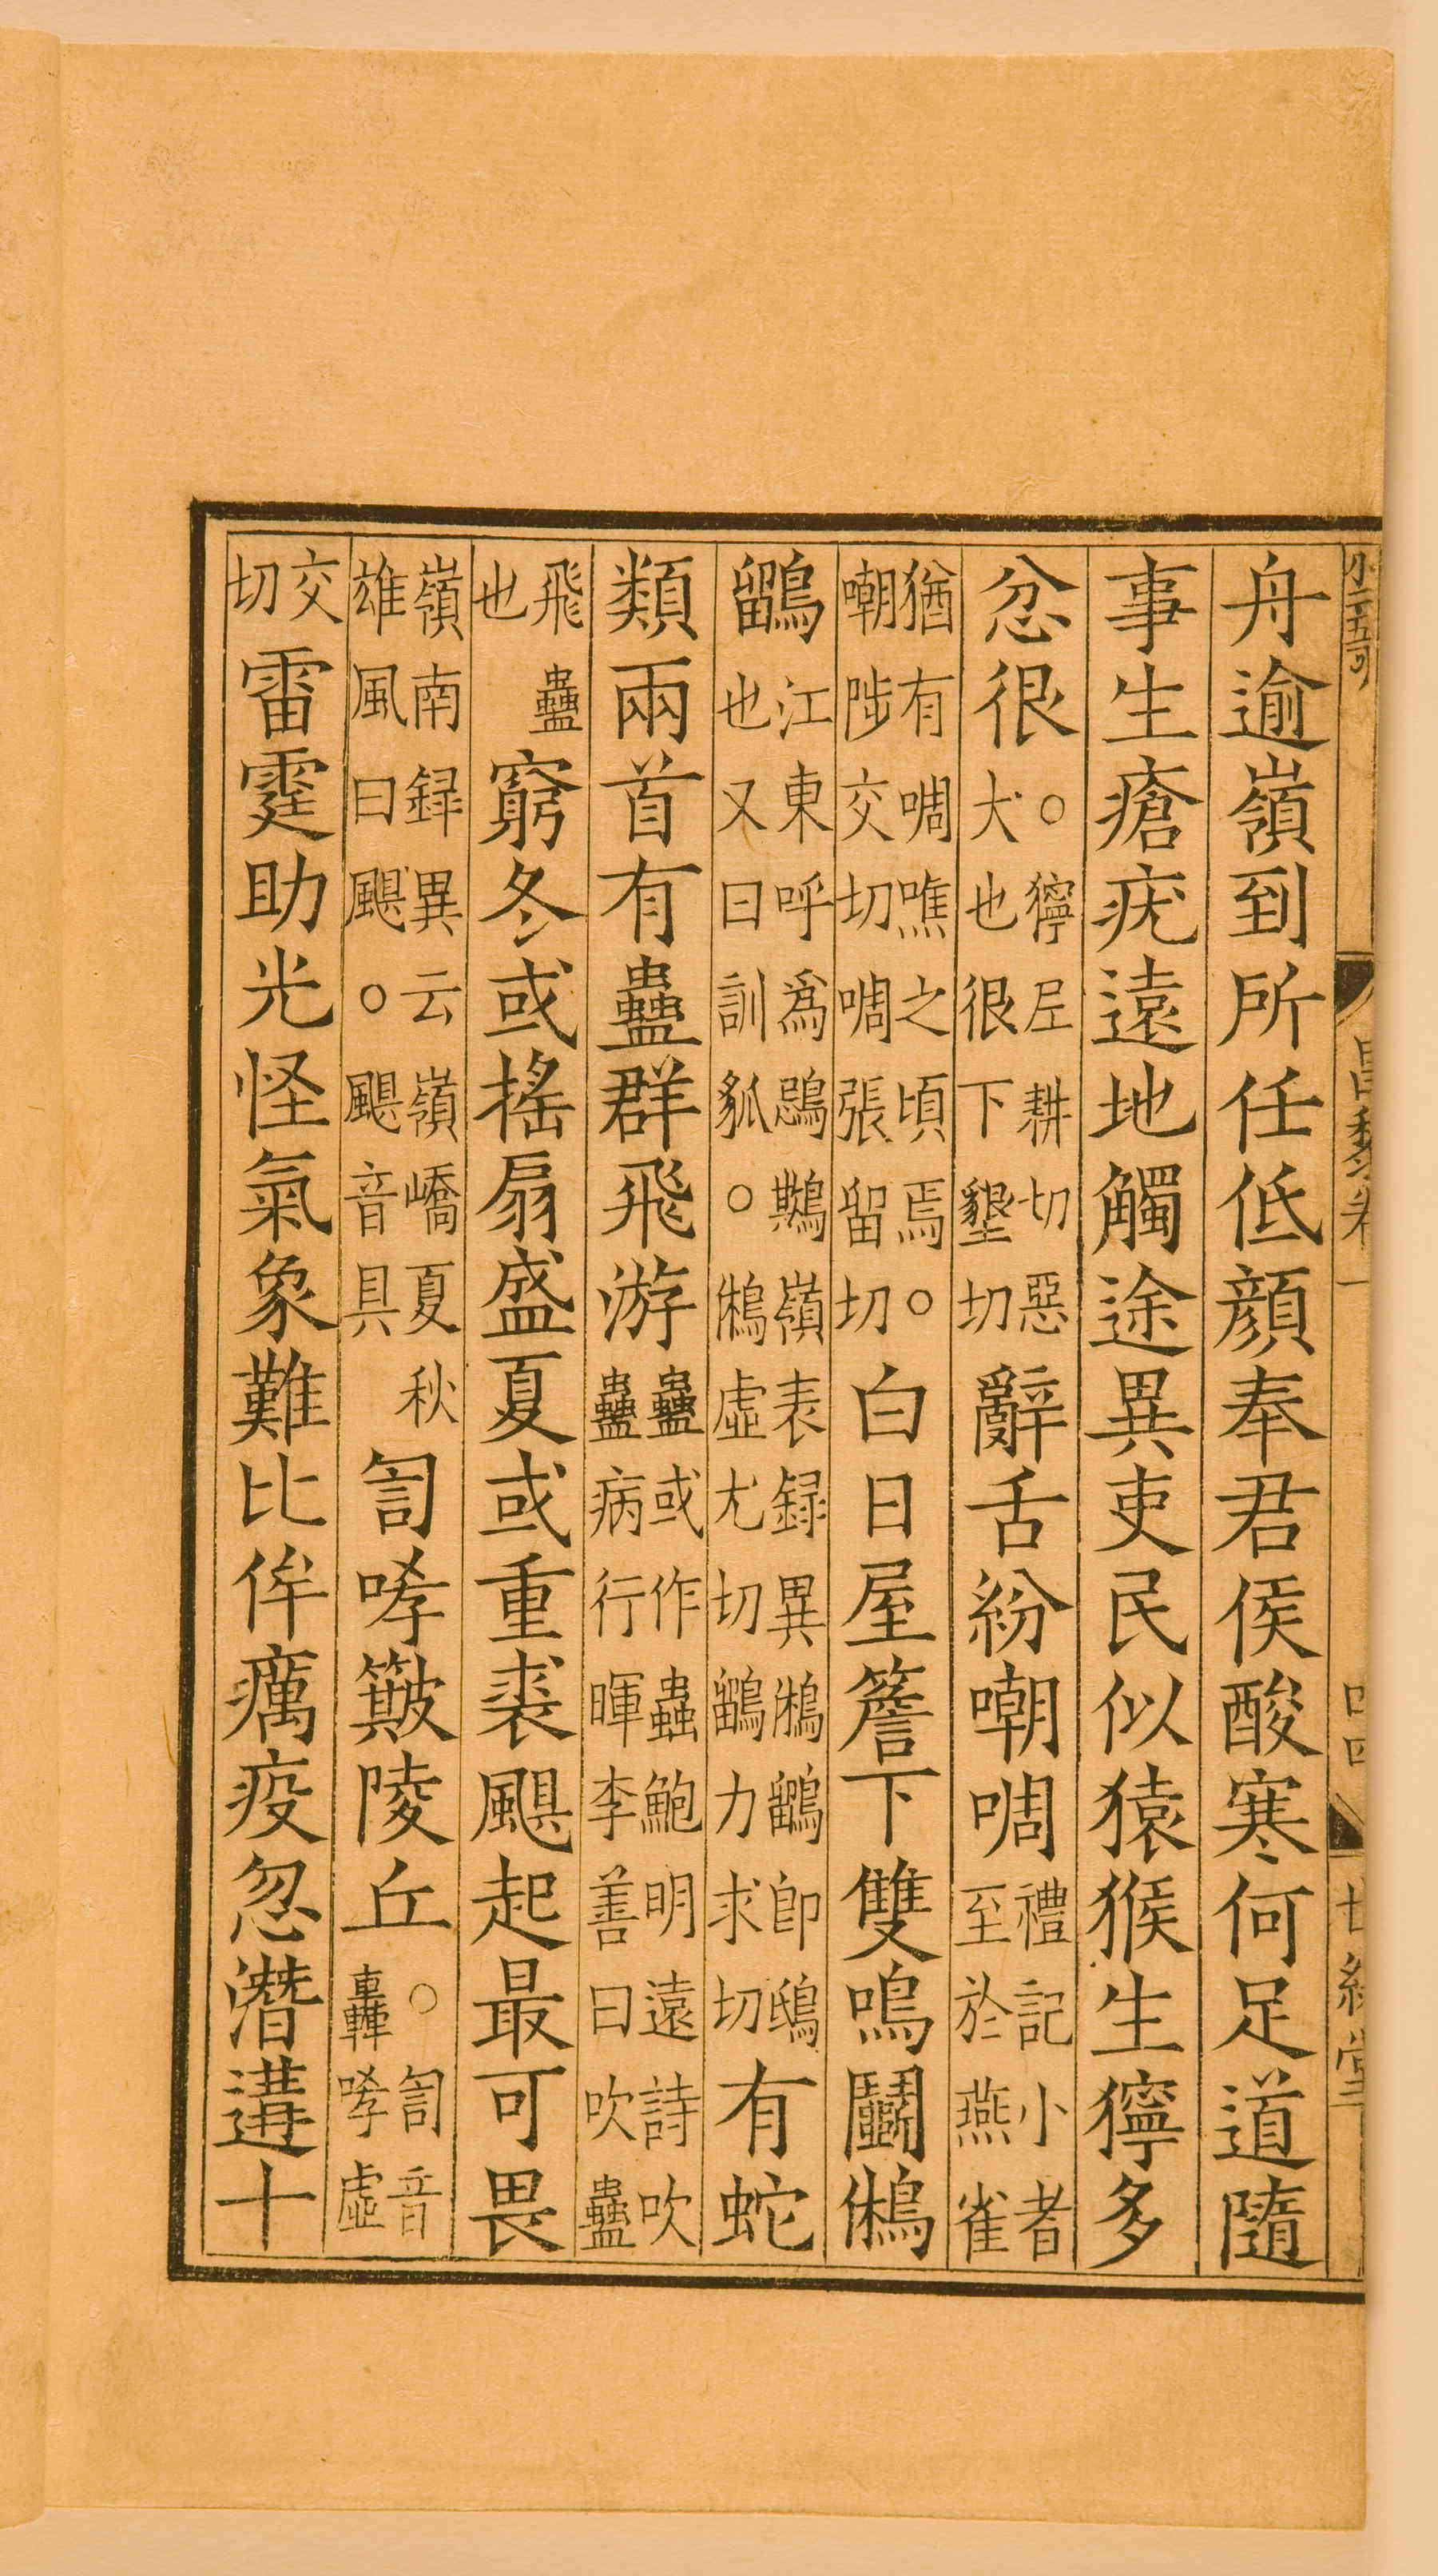 小二百五可
昌黎卷一
四四
世綵堂
舟逾嶺到所任低顏奉君侯酸寒何足道隨
事生瘡疣遠地觸途異吏民似猿猴生獰多
忿很。獰尼耕切惡犬也很下墾切辭舌紛嘲啁禮記小者至於燕雀
猶有啁噍之頃焉。嘲陟交切啁張留切白日屋簷下雙鳴鬭鵂
鶹江東呼爲鵋䳢嶺表録異鵂鶹卽鴟也又曰訓狐。鵂虛尤切鶹力求切有蛇
類兩首有蠱群飛游蠱或作蟲鮑明遠詩吹蠱病行暉李善曰吹蠱
飛蠱也窮冬或搖扇盛夏或重裘颶起最可畏
嶺南録異云嶺嶠夏秋雄風曰颶。颶音具訇哮簸陵丘。訇音轟哮虛
交切雷霆助光怪氣象難比侔癘疫忽潛遘十